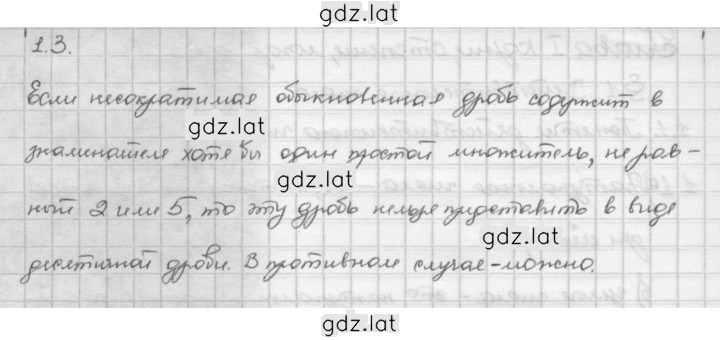 gdz.lat
1.3.
Если несократимая обыкновенная дробь содержит в
gdz.lat
знаменателе хотя бы один простой множитель, не рав-
gdz.lat
ный 2 или 5, то эту дробь нельзя представить в виде
gdz.lat
десятичной дроби. В противном случае-можно.
gdz.lat